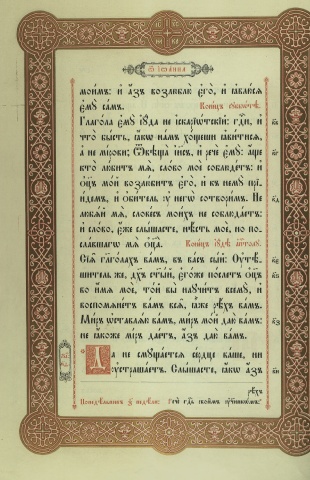 Ѿ Іѡа́нна
мои́мъ: и҆ а҆́зъ возлюблю̀ є҆го̀, и҆ ꙗ҆влю́сѧ
є҆мꙋ̀ са́мъ. Коне́цъ сꙋббѡ́тѣ.
Глаго́ла є҆мꙋ̀ і҆ꙋ́да не і҆скарїѡ́тскїй: гдⷭ҇и, и҆
что̀ бы́сть, ꙗ҆́кѡ на́мъ хо́щеши ꙗ҆ви́тисѧ,
а҆ не мі́рови; Ѿвѣща̀ і҆и҃съ, и҆ речѐ є҆мꙋ̀: а҆́ще
кто̀ лю́битъ мѧ̀, сло́во моѐ соблюде́тъ: и҆
ѻ҆ц҃ъ мо́й возлю́битъ є҆го̀, и҆ къ немꙋ̀ прїи́-
демъ, и҆ ѻ҆би́тель ᲂу҆ негѡ̀ сотвори́мъ. Не
любѧ́й мѧ̀, слове́съ мои́хъ не соблюда́етъ:
и҆ сло́во, є҆́же слы́шасте, нѣ́сть моѐ, но по-
сла́вшагѡ мѧ̀ ѻ҆ц҃а̀. Коне́цъ і҆ꙋ́дѣ а҆пⷭ҇лꙋ.
Сїѧ̑ гл҃го́лахъ ва́мъ, въ ва́съ сы́й: Оу҆тѣ́-
шитель же, дх҃ъ ст҃ы́й, є҆го́же по́слетъ ѻ҆ц҃ъ
во и҆́мѧ моѐ, то́й вы̀ наꙋчи́тъ всемꙋ̀, и҆
воспомѧне́тъ ва́мъ всѧ̑, ꙗ҆̀же рѣ́хъ ва́мъ.
Ми́ръ ѡ҆ставлѧ́ю ва́мъ, ми́ръ мо́й даю̀ ва́мъ:
не ꙗ҆́коже мі́ръ дае́тъ, а҆́зъ даю̀ ва́мъ.
Да не смꙋща́етсѧ се́рдце ва́ше, ни
ᲂу҆страша́етъ. Слы́шасте, ꙗ҆́кѡ а҆́зъ
рѣ́хъ